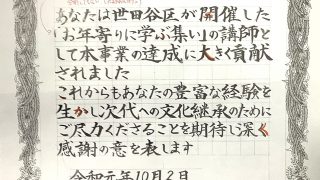 あなたは世田谷区が開催した
「お年寄りに学ぶ集い」の講師と
して本事業の達成に大きく貢献
されました
これからもあなたの豊富な経験を
生かし次代への文化継承のために
ご尽力くださることを期待し深く
感謝の意を表します
令和元年10月2日